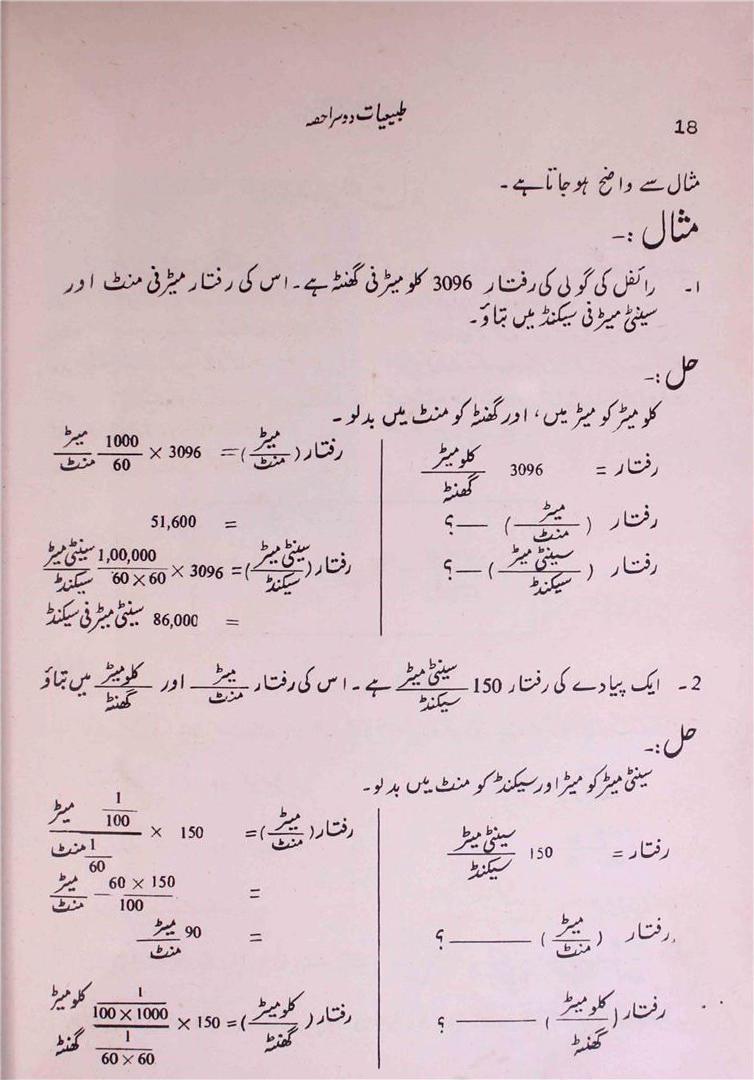 18
طبیعیات دوسرا حصہ
مثال سے واضح ہو جاتا ہے۔
مثال :۔
۱۔ رائفل کی گولی کی رفتار 3096 کلو میٹر فی گھنٹہ ہے۔ اس کی رفتار میٹر فی منٹ اور
سینٹی میٹر فی سیکنڈ میں بتاؤ۔
حل :۔
کلو میٹر کو میٹر میں، اور گھنٹہ کو منٹ میں بدلو۔
رفتار = 3096 کلو میٹر / گھنٹہ
رفتار (میٹر / منٹ) — ؟
رفتار (سینٹی میٹر / سیکنڈ) — ؟
رفتار (میٹر / منٹ) = 3096 × 1000 / 60 میٹر / منٹ
= 51,600
رفتار (سینٹی میٹر / سیکنڈ) = 3096 × 1,00,000 / 60 × 60 سینٹی میٹر / سیکنڈ
= 86,000 سینٹی میٹر فی سیکنڈ
2۔ ایک پیادے کی رفتار 150 سینٹی میٹر / سیکنڈ ہے۔ اس کی رفتار میٹر / منٹ اور کلو میٹر / گھنٹہ میں بتاؤ
حل :۔
سینٹی میٹر کو میٹر اور سیکنڈ کو منٹ میں بدلو۔
رفتار = 150 سینٹی میٹر / سیکنڈ
رفتار (میٹر / منٹ) — ؟
رفتار (کلو میٹر / گھنٹہ) — ؟
رفتار (میٹر / منٹ) = 150 × 1/100 میٹر / 1/60 منٹ
= 60 × 150 / 100 میٹر / منٹ
= 90 میٹر / منٹ
رفتار (کلو میٹر / گھنٹہ) = 150 × 1/100 × 1000 کلو میٹر / 1/60 × 60 گھنٹہ